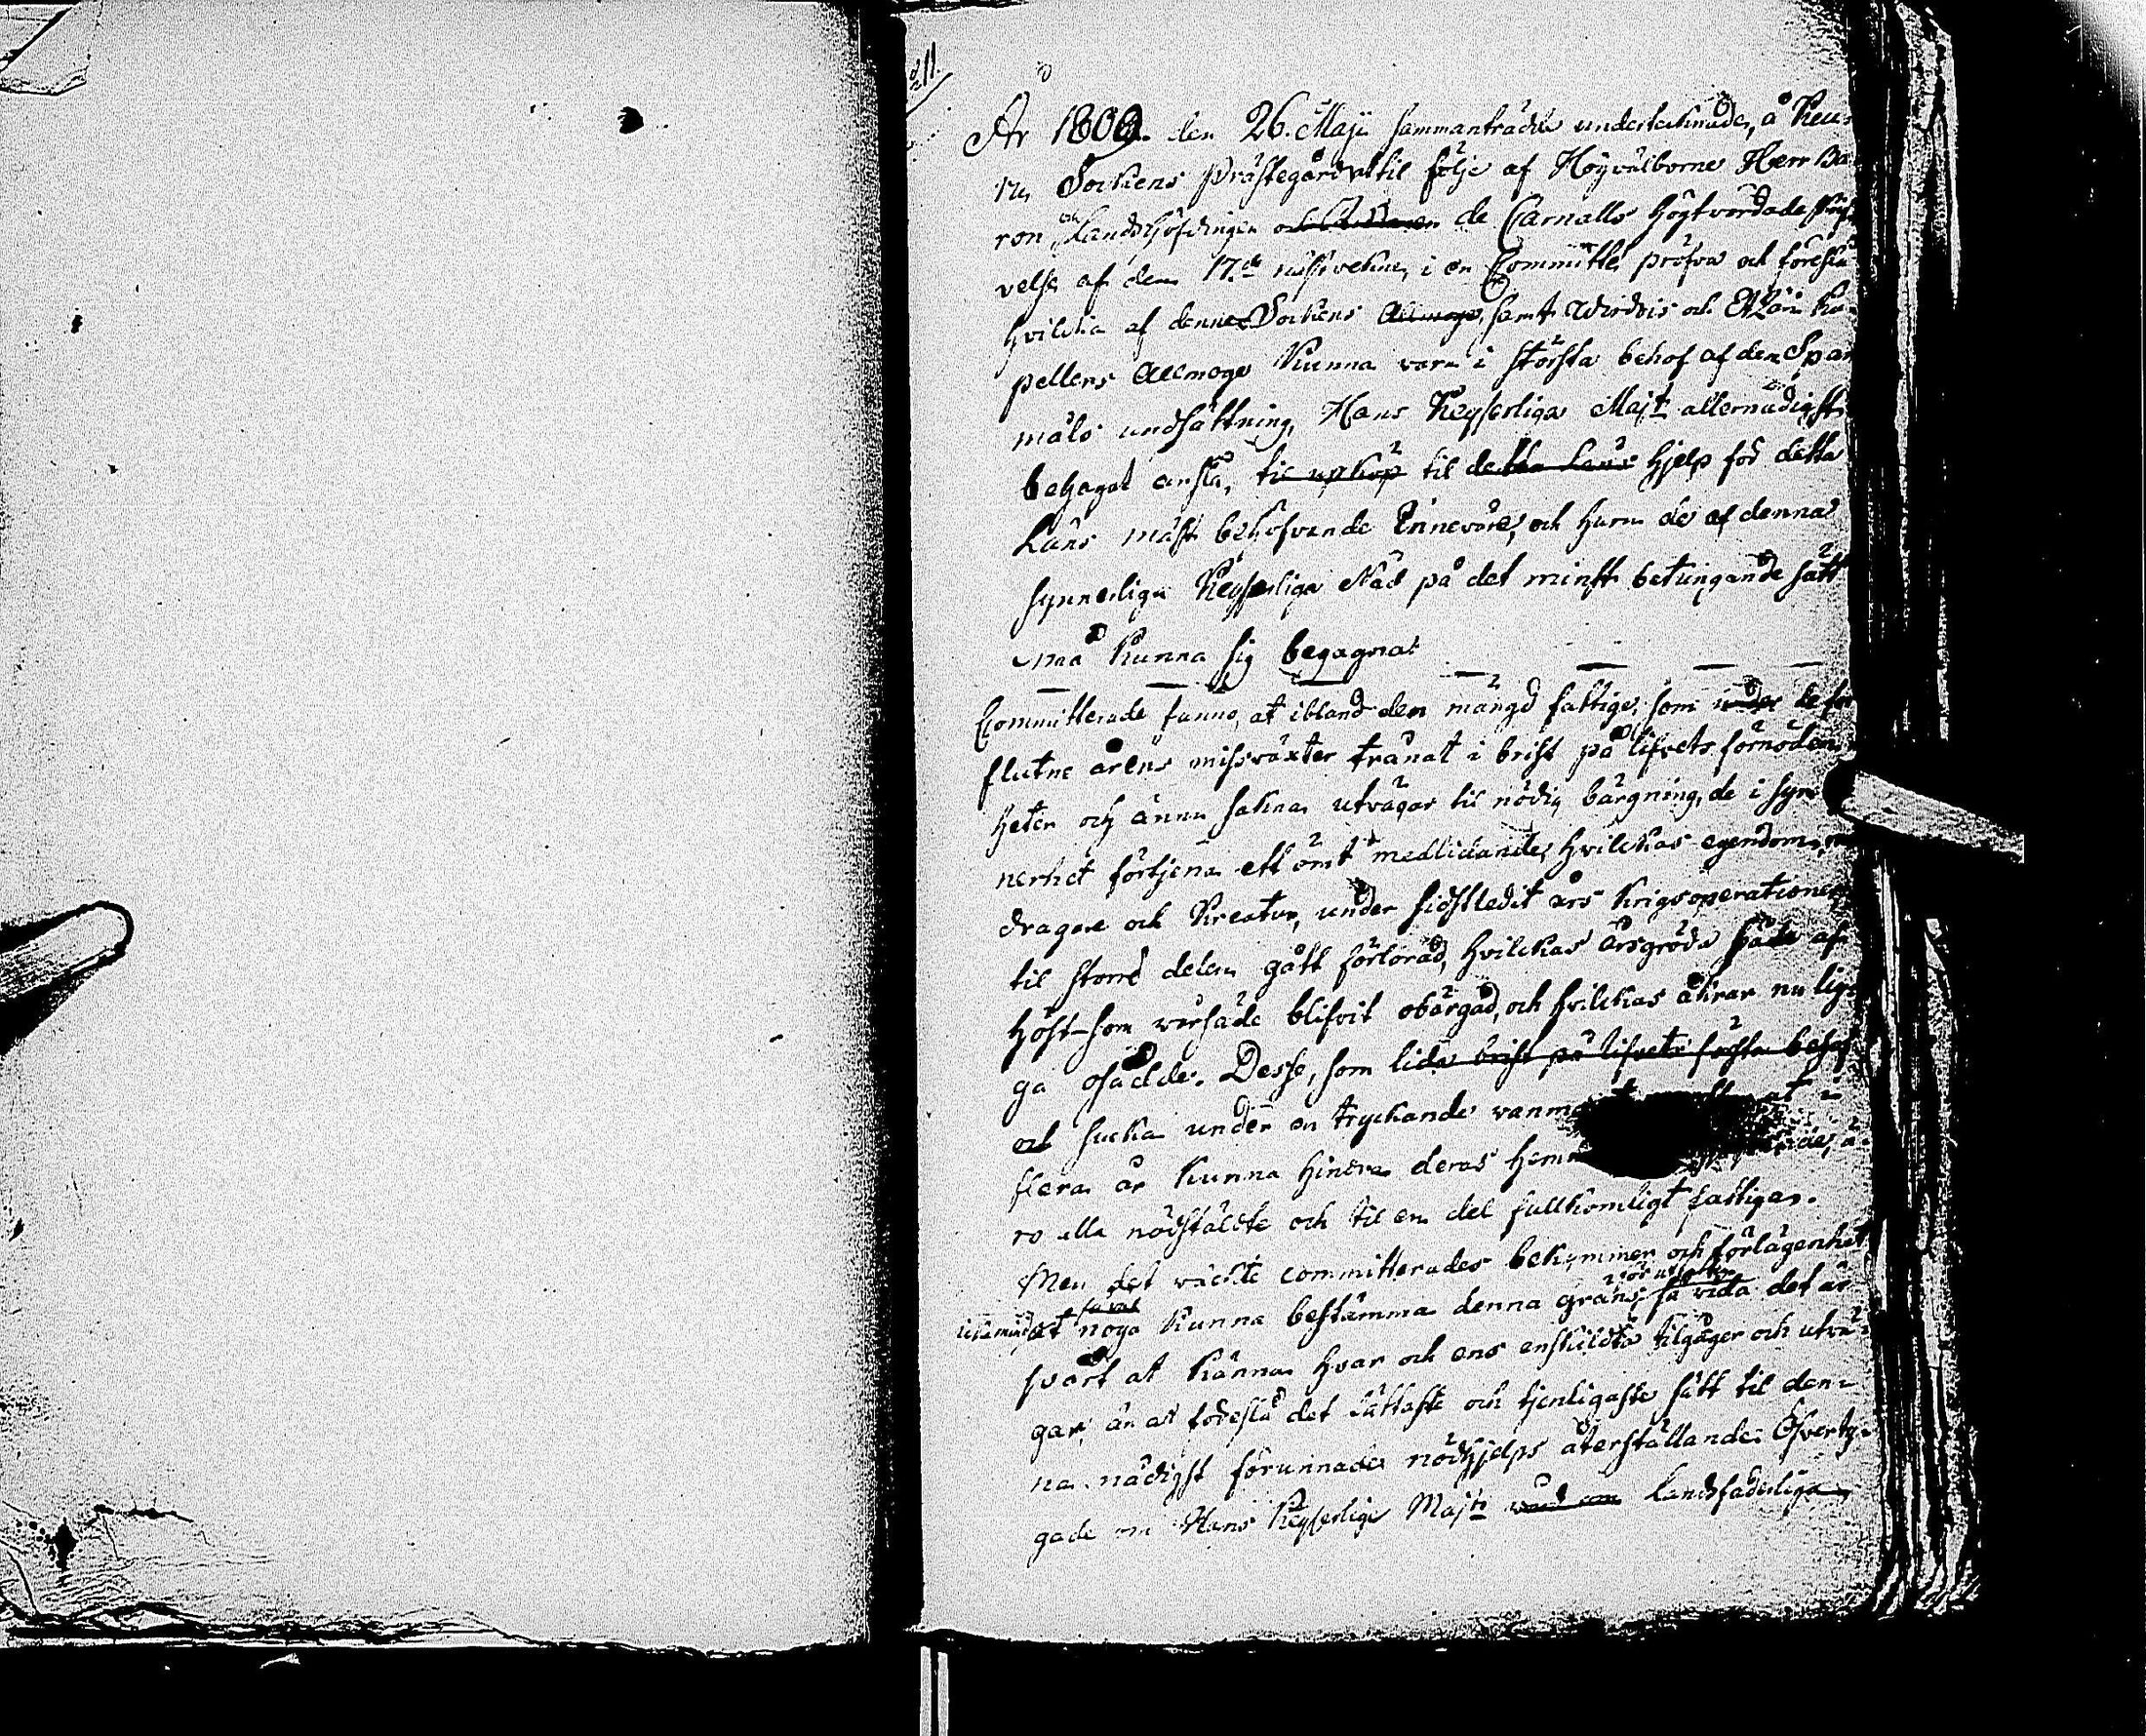 År 1809. den 26. Maji sammanträdde undertecknade, å Keu-
ru Sockens Prästegård til följe af Högvälborne Herr Ba-
ron Landshöfdingen de Carnalls högtvördade skrif-
velse af den 17.de nästvekne, i en Committé pröfva och föreslå
hvilcka af denne Sockens Allmoge, samt Wirdois och Etzäri Ka-
pellers Allmoge kunna vara i största behof af den Span-
måls undsättning, Hans Keyserliga Maj:t allernådigst
behagat anslå, til uphof til detta Läns hjelp för detta
Läns mäst behöfvande Innevånare, och huru de af denna
synnerliga Keyserliga Nåd på det minst betungande sätt
må kunna sig begagna
Committerade funno, at ibland den mängd fattige, som under de för-
flutne årens missväxter trånat i brist på lifvets förnöden-
heter och ännu sakna utvägar til nödig bärgning, de i syn-
nerhet förtjena ett ömt medlidande, hvilckas egendom,
dragare och Kreatur, under sidstledit års Krigsoperationer
til större delen gått förlorad, hvilckas årsgröda både af
höst- som vårsäde blifvit obärgad, och hvilckas åkrar nu lig-
ga osådde. Desse, som lida brist på lifvets första behof
och sucka under en tryckande vanm at i
flera år kunna hindra deras hem
ro alla nödstäldte och til en del fullkomligt fattiga.
Men det väckte committerades bekymmer och förlägenhet
at noga kunna bestämma denna gräns, så vida det är
svårt at känna hvar och ens enskildta tilgånger och utvä-
gar, än at föreslå det lättaste och tjenligaste sätt til den-
na nådigst förunnade nödhjelps återställande. Öfverty-
gade om Hans Keyserlige Maj:ts Landsfaderliga